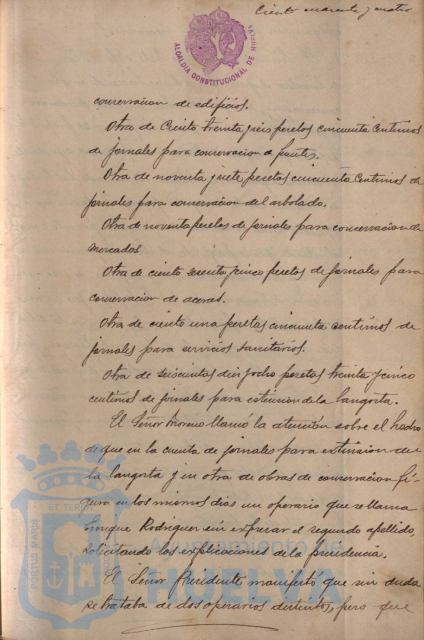 Ciento cuarenta y cuatro
ALCALDIA CONSTITUCIONAL DE HUELVA
conservacion de edificios.
Otra de Ciento treinta y seis pesetas cincuenta Centimos
de jornales para conservacion de fuentes.
Otra de noventa y siete pesetas cincuenta Centimos de
jornales para conservacion del arbolado.
Otra de noventa pesetas de jornales para conservacion de
mercados
Otra de ciento sesenta y cinco pesetas de jornales para
conservacion de aceras.
Otra de ciento una pesetas cincuenta centimos de
jornales para servicios sanitarios.
Otra de seiscientas diez y ocho pesetas treinta y cinco
centimos de jornales para extincion de la langosta.
El Señor Moreno llamó la atención sobre el hecho
de que en la cuenta de jornales para extinsion de
la langosta y en otra de obras de conservacion fi-
gura en los mismos dias un operario que se llama
Enrique Rodriguez sin expresar el segundo apellido,
solicitando las explicaciones de la presidencia.
El Señor Presidente manifestó que sin duda
se trataba de dos operarios distintos, pero que
PORTUS MARIS ET TERRAE
Ayuntamiento de
HUELVA